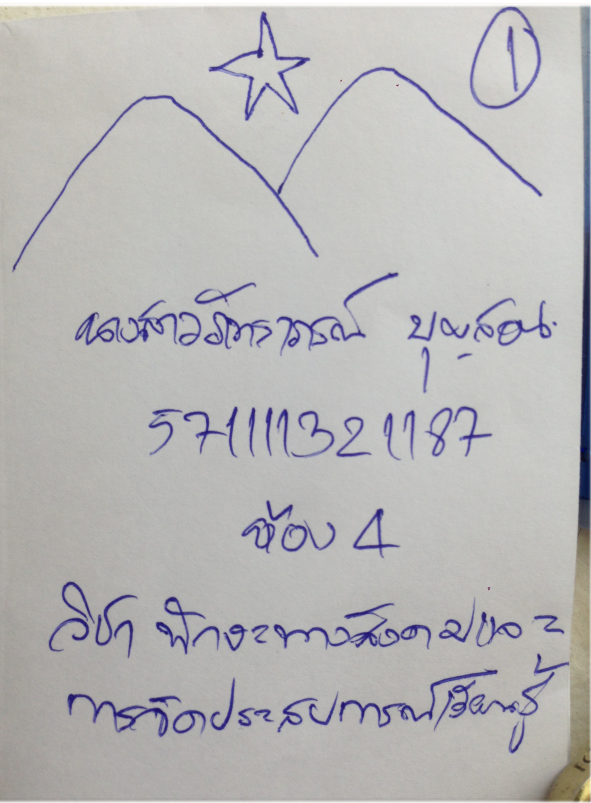 1
นางสาวภัทราภรณ์ บุญสอน
571111321187
ห้อง 4
วิชา ทักษะทางสังคมและ
การจัดประสบการณ์เรียนรู้